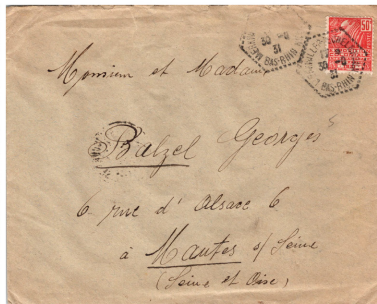 50
30 -8
31
BAS-RHIN
30 -8
31
BAS-RHIN
Monsieur et Madame
Balzel Georges
6 rue d'Alsace 6
à Mantes s/ Seine
(Seine et Oise)